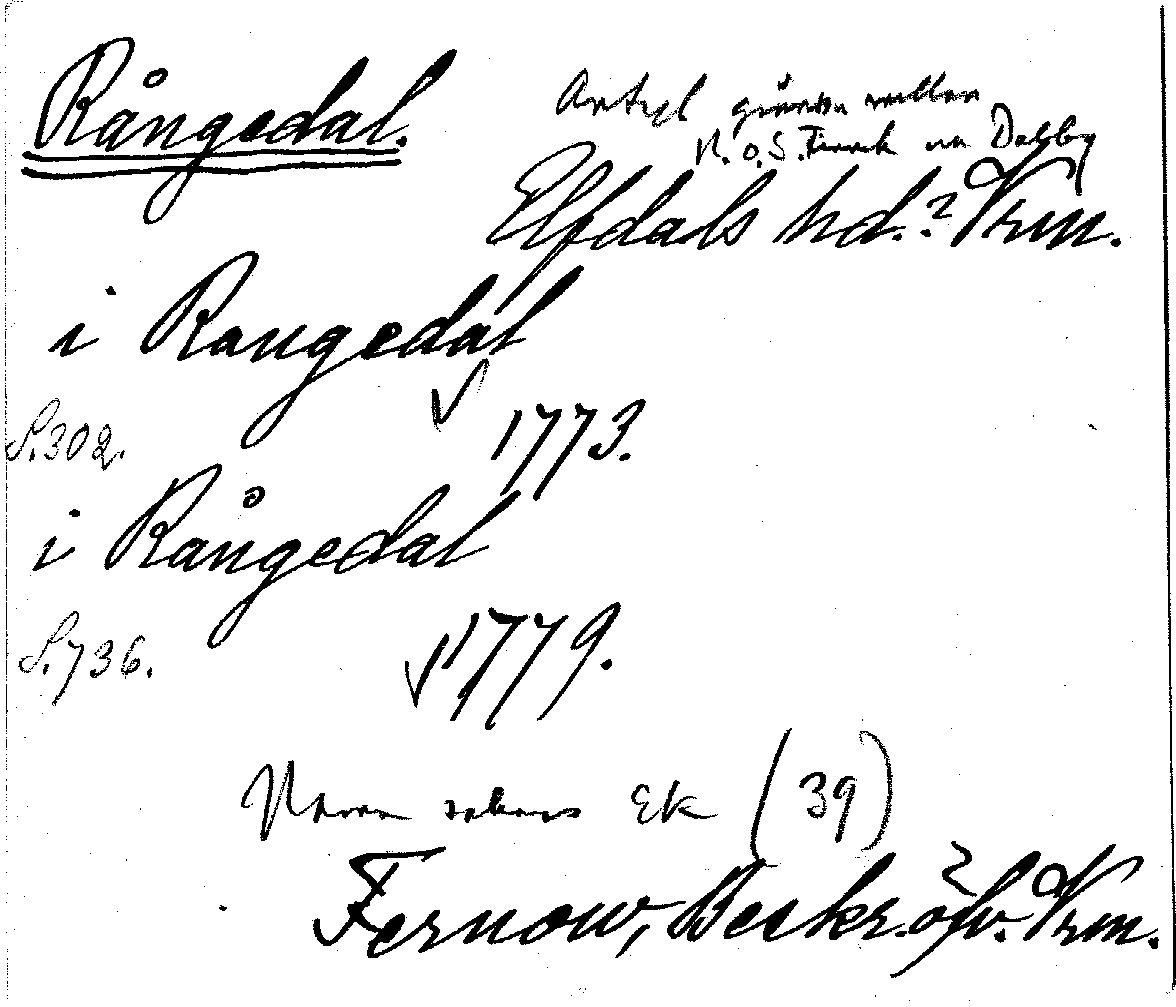 Rångedal.
Antyd gården mellan
N. o. S. Finnsk on Dalby
Elfdals hd.? Vrm.
i Rangedal
S. 302. 1773.
i Rångedal
S. 736. 1779.
Namn saknas Ek (39)
Fernow, Beskr. öfv. Vrm.